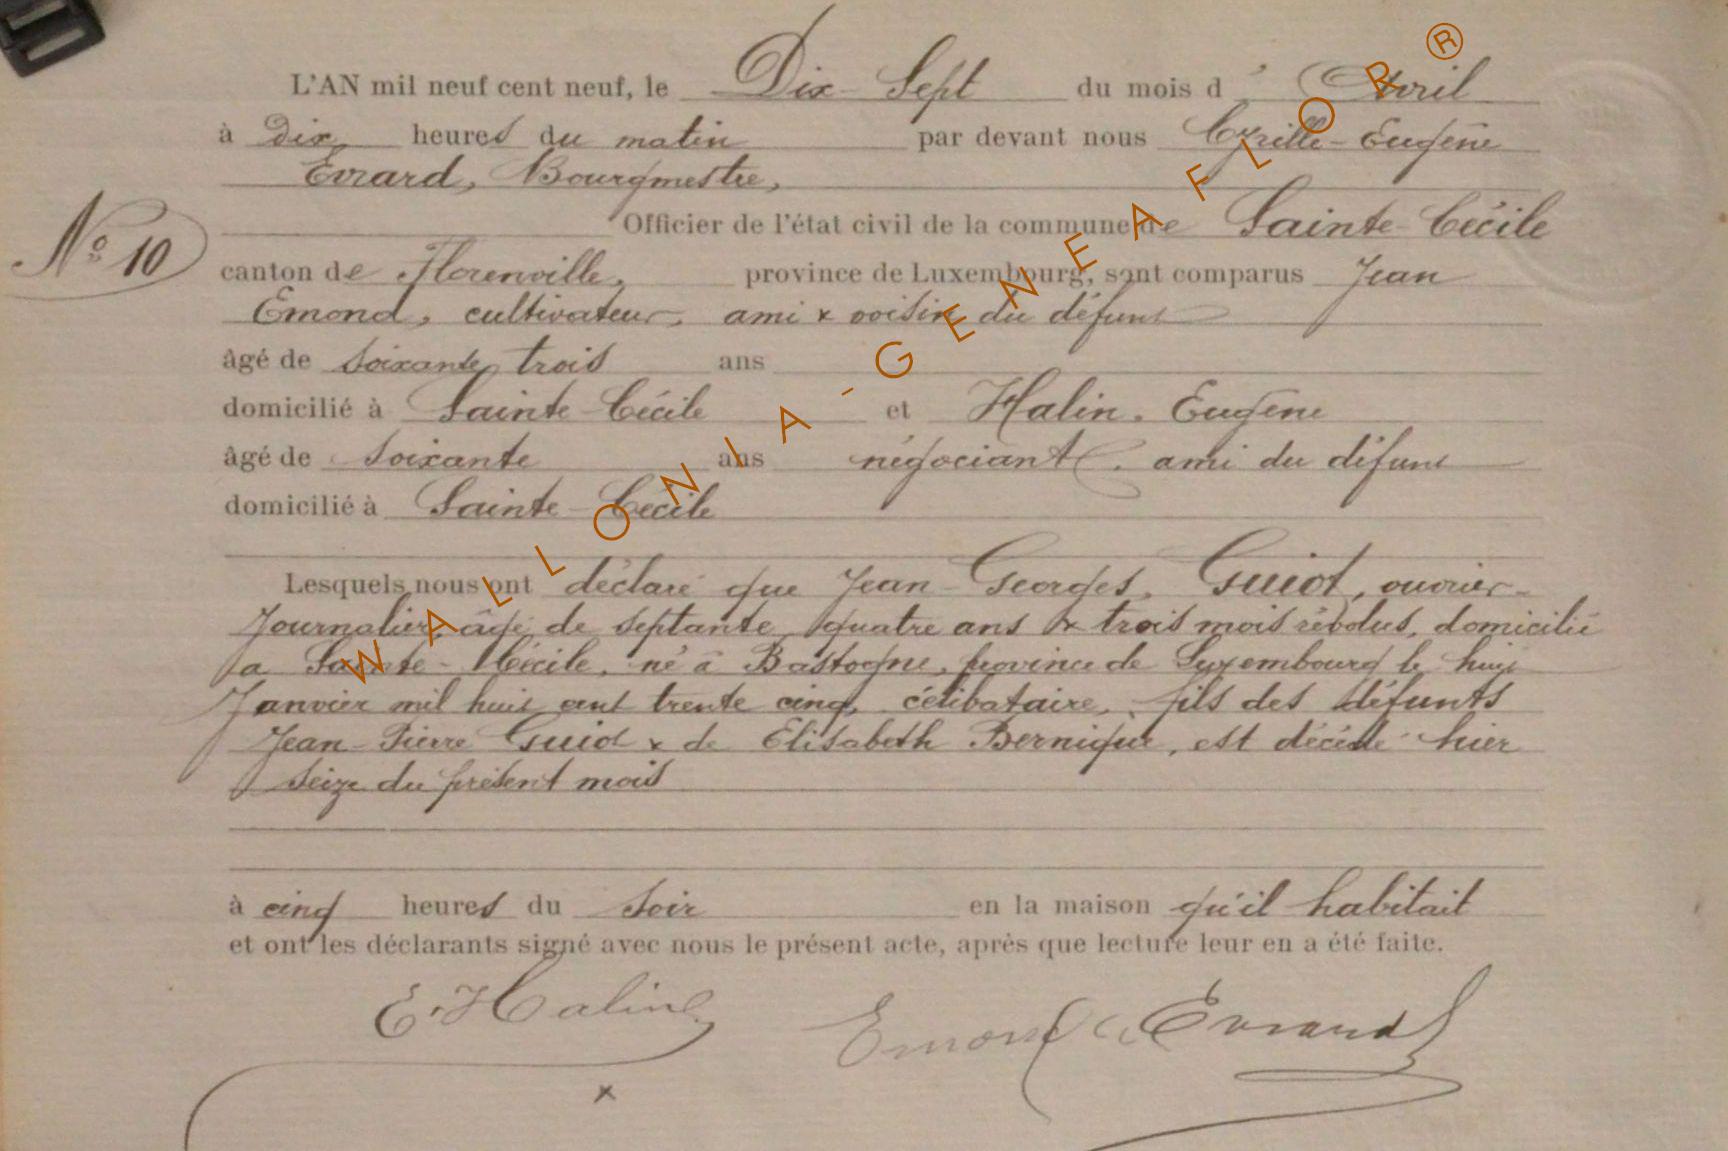 L'AN mil neuf cent neuf, le Dix-Sept du mois d' Avril
à Dix heures du matin par devant nous Cyrille-Eugène
Evrard, Bourgmestre,
Officier de l'état civil de la commune de Sainte-Cécile
N° 10
canton de Florenville, province de Luxembourg, sont comparus Jean
Emond, cultivateur, ami & voisin du défunt
âgé de soixante trois ans
domicilié à Sainte-Cécile et Halin. Eugène
âgé de soixante ans négociant. ami du défunt
domicilié à Sainte-Cécile
Lesquels nous ont déclaré que Jean-Georges. Guiot, ouvrier-
Journalier, âgé de septante quatre ans & trois mois révolus, domicilié
a Sainte-Cécile, né à Bastogne, province de Luxembourg le huit
Janvier mil huit cent trente cinq, célibataire, fils des défunts
Jean-Pierre Guiot & de Elisabeth Bernique, est décédé hier
seize du présent mois
à cinq heures du soir en la maison qu'il habitait
et ont les déclarants signé avec nous le présent acte, après que lecture leur en a été faite.
E. Halin
Emond C. Evrard
WALLONIA-GENEAFLOR®